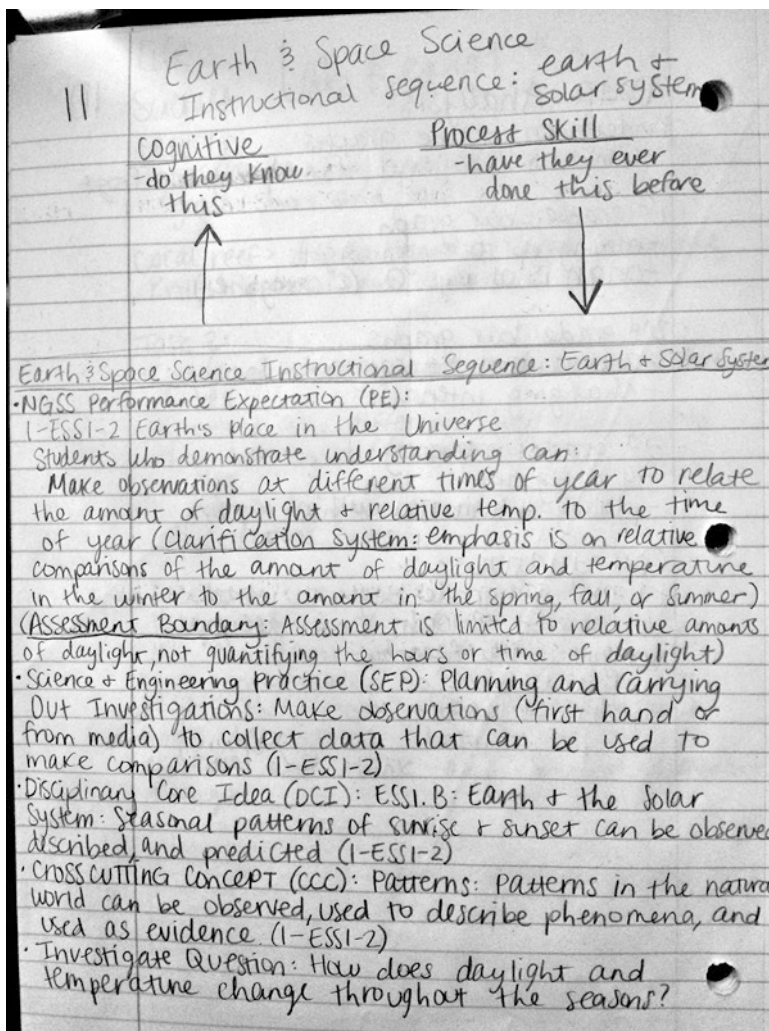 Earth & Space Science
11
Instructional sequence: earth +
solar system
Cognitive
Process Skill
-do they know
this
-have they ever
done this before
Earth & Space Science Instructional Sequence: Earth + Solar System
•NGSS Performance Expectation (PE):
1-ESS1-2 Earth's Place in the Universe
Students who demonstrate understanding can:
Make observations at different times of year to relate
the amount of daylight + relative temp. to the time
of year (Clarification System: emphasis is on relative
comparisons of the amount of daylight and temperature
in the winter to the amount in the spring, fall, or summer)
(Assessment Boundary: Assessment is limited to relative amants
of daylight, not quantifying the hours or time of daylight)
•Science + Engineering Practice (SEP): Planning and Carrying
Out Investigations: Make observations (first hand or
from media) to collect data that can be used to
make comparisons (1-ESS1-2)
•Disciplinary Core Idea (DCI): ESS1.B: Earth + the Solar
System: Seasonal patterns of sunrise + sunset can be observed
discribed, and predicted (1-ESS1-2)
•Crosscutting Concept (CCC): Patterns: Patterns in the natura
world can be observed, used to describe phenomena, and
used as evidence. (1-ESS1-2)
•Investigate Question: How does daylight and
temperature change throughout the seasons?